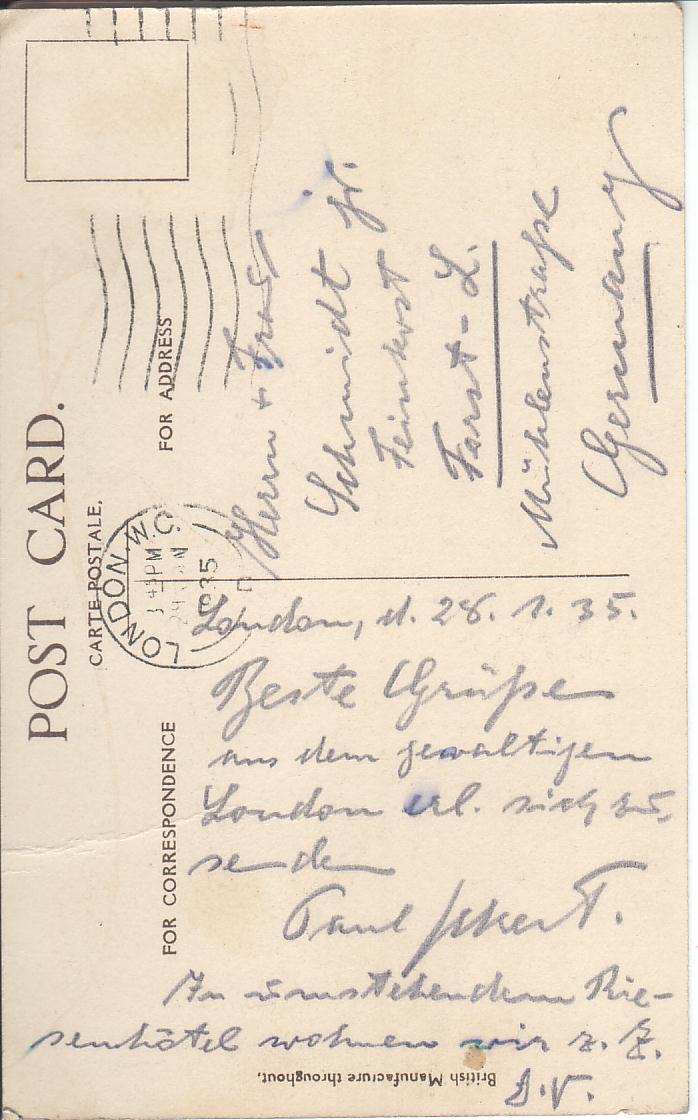 POST CARD.
CARTE POSTALE.
FOR CORRESPONDENCE
FOR ADDRESS
LONDON. W.C.
PM
1935
London, d. 28. 1. 35.
Beste Grüße
aus dem gewaltigen
London erl. sich zu
senden
Paul
In umstehendem Rie-
senhôtel wohnen wir z. Z.
D.V.
Herrn + Frau
Schmidt jr.
Feinkost
Forst - L.
Mühlenstraße
Germany
British Manufacture throughout.